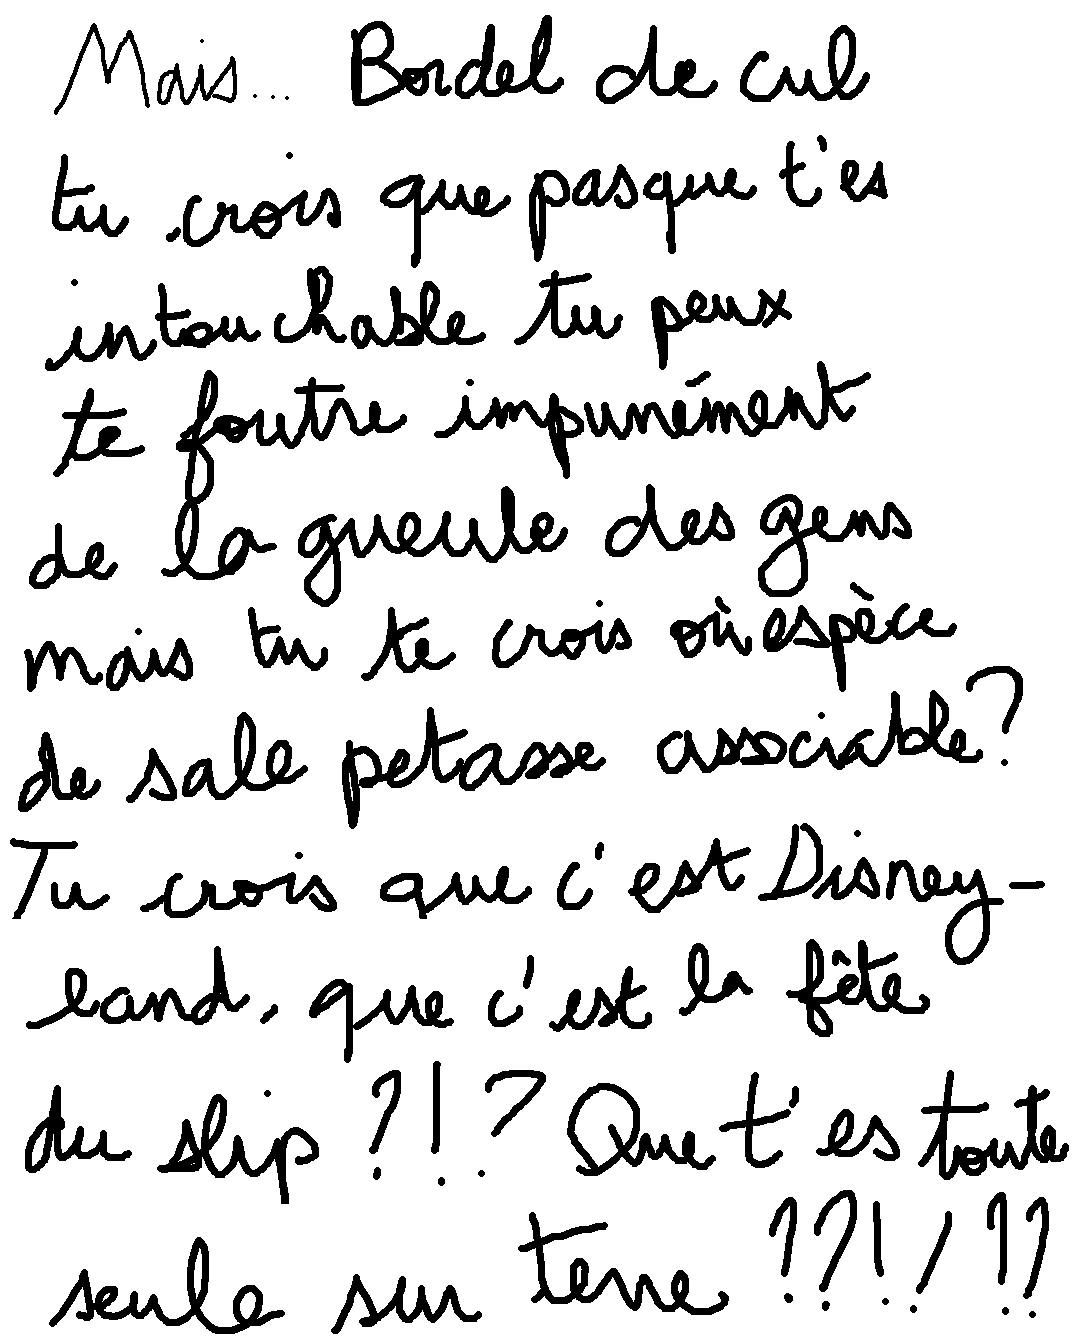 Mais... Bordel de cul
tu crois que pasque t'es
intouchable tu peux
te foutre impunément
de la gueule des gens
mais tu te crois où espèce
de sale petasse associable?
Tu crois que c'est Disney-
land, que c'est la fête
du slip ?!? Que t'es toute
seule sur terre ??!!??